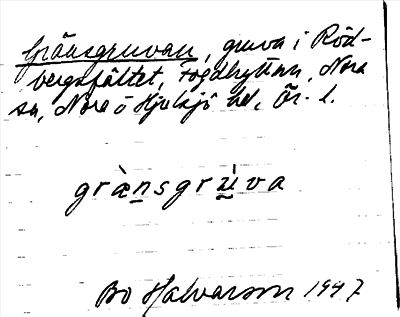 Gränsgruvan, gruva i Röd-
bergsfältet, Fogdhyttan, Nora
sn, Nora o Hjulsjö bel, Ör. l.
grà̱nsgrù̱va
Bo Halvarson 1947